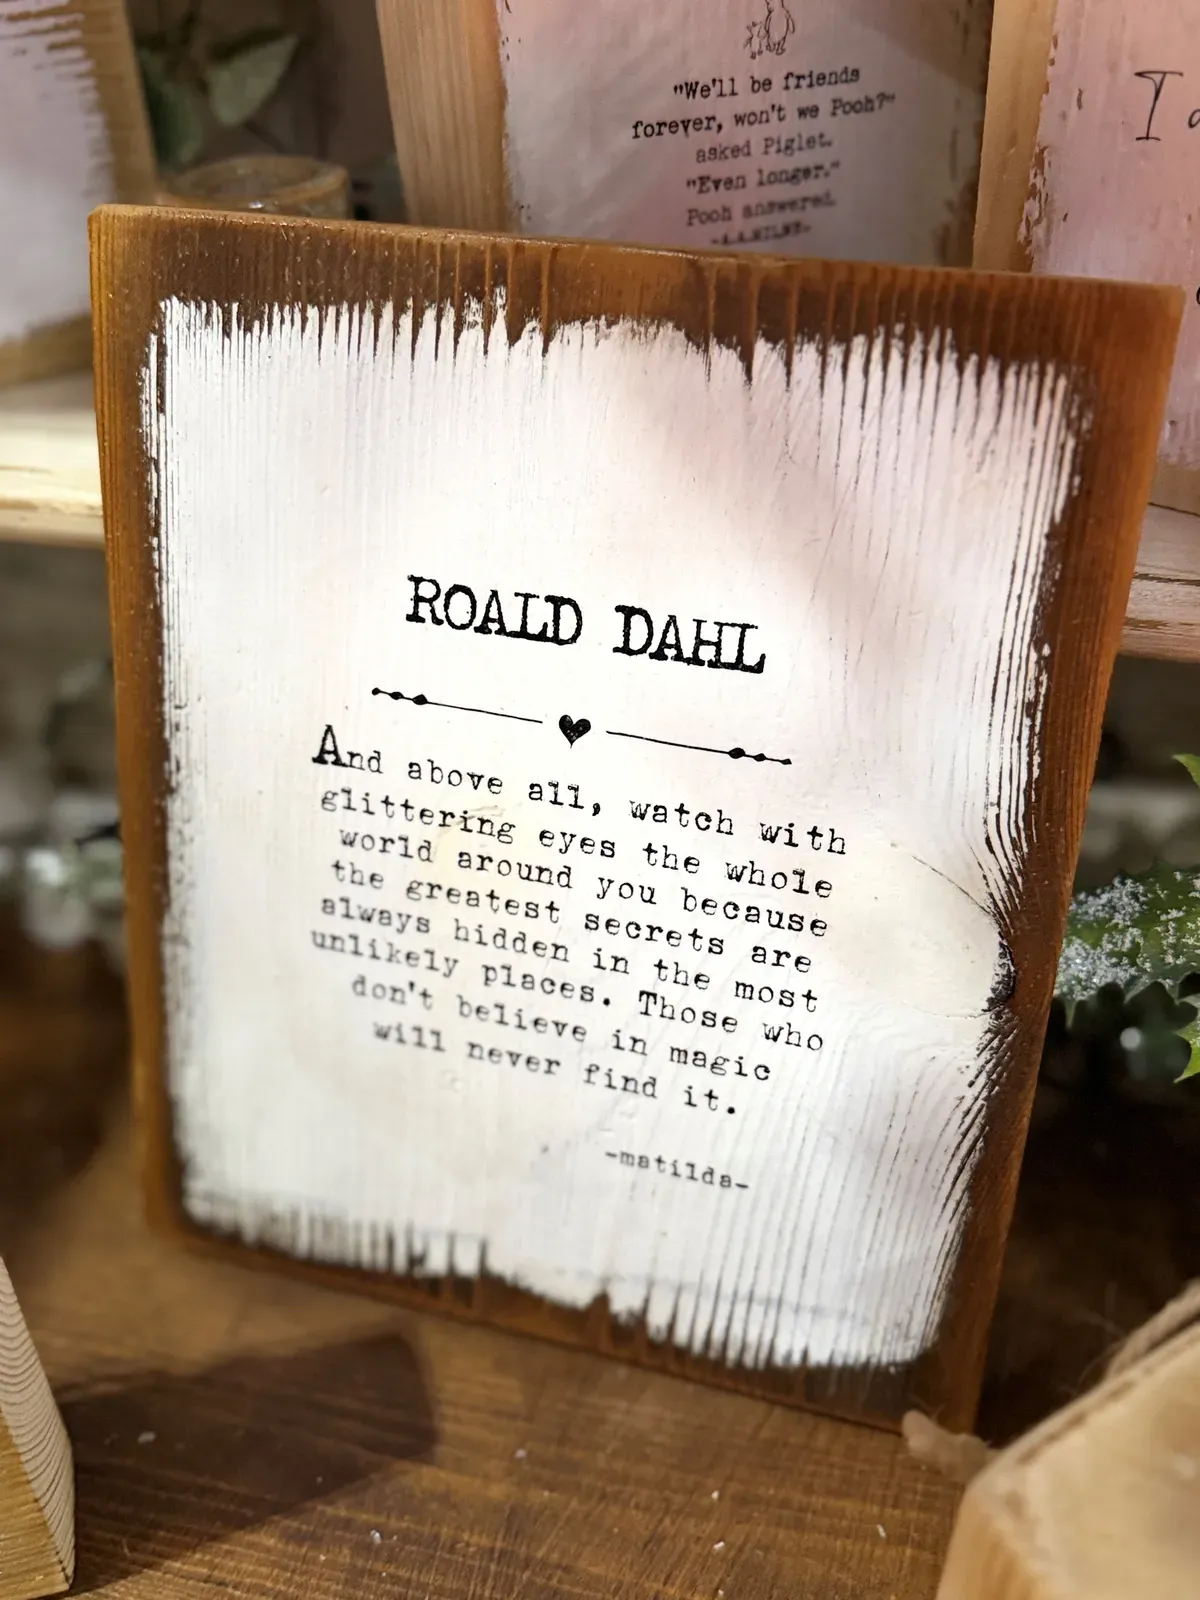 "We'll be friends
forever, won't we Pooh?"
asked Piglet.
"Even longer."
Pooh answered.
-A.A.MILNE-
I
ROALD DAHL
And above all, watch with
glittering eyes the whole
world around you because
the greatest secrets are
always hidden in the most
unlikely places. Those who
don't believe in magic
will never find it.
-matilda-